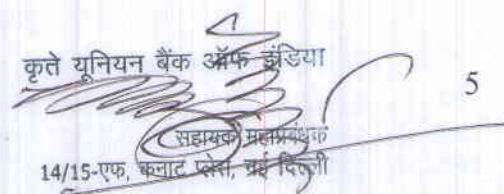 कृते यूनियन बैंक ऑफ इंडिया
5
सहायक महाप्रबंधक
14/15-एफ, कनाट प्लेस, नई दिल्ली